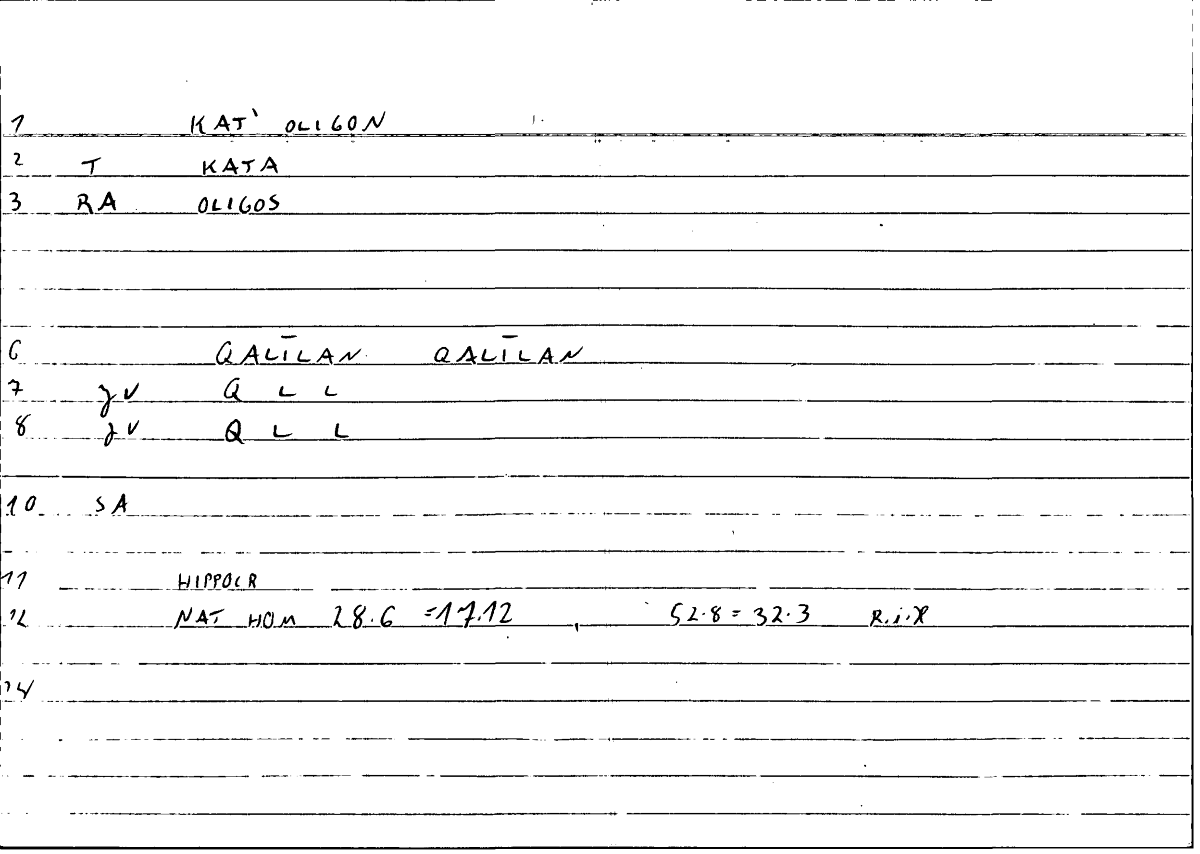 1 KAT' OLIGON
2 T KATA
3 RA OLIGOS
6 QALĪLAN QALĪLAN
7 V Q L L
8 V Q L L
10 SA
11 HIPPOCR
12 NAT HOM 28.6 =17.12 , 52.8 = 32.3
14